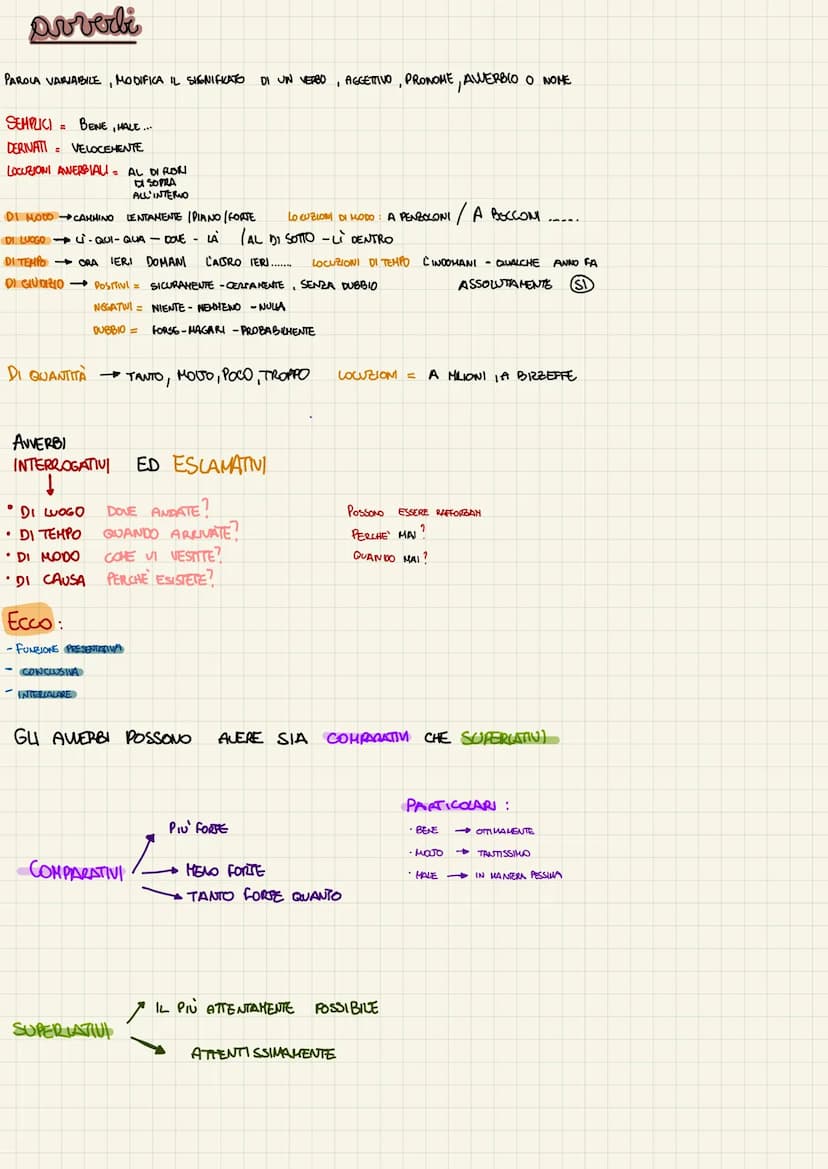 avverbi
PAROLA VARIABILE, MODIFICA IL SIGNIFICATO DI UN VERBO, AGGETTIVO, PRONOME, AVVERBIO O NOME
SEMPLICI = BENE, MALE...
DERIVATI = VELOCEMENTE
LOCUZIONI AVVERBIALI = AL DI FUORI
DI SOPRA
ALL'INTERNO
DI MODO → CAMMINO LENTAMENTE / PIANO / FORTE LOCUZIONI DI MODO: A PENZOLONI / A BOCCONI .....
DI LUOGO → LÌ - QUI - QUA - DOVE - LÀ / AL DI SOTTO - LÌ DENTRO
DI TEMPO → ORA IERI DOMANI L'ALTRO IERI....... LOCUZIONI DI TEMPO L'INDOMANI - QUALCHE ANNO FA
DI GIUDIZIO → POSITIVI = SICURAMENTE - CERTAMENTE, SENZA DUBBIO ASSOLUTAMENTE SÌ
NEGATIVI = NIENTE - NEMMENO - NULLA
DUBBIO = FORSE - MAGARI - PROBABILMENTE
DI QUANTITÀ → TANTO, MOLTO, POCO, TROPPO LOCUZIONI = A MILIONI, A BIZZEFFE
AVVERBI
INTERROGATIVI ED ESCLAMATIVI
• DI LUOGO DOVE ANDATE?
• DI TEMPO QUANDO ARRIVATE?
• DI MODO COME VI VESTITE?
• DI CAUSA PERCHÈ ESISTETE?
POSSONO ESSERE RAFFORZATI
PERCHE' MAI?
QUANDO MAI?
ECCO:
- FUNZIONE PRESENTATIVA
- CONCLUSIVA
- INTERCALARE
GLI AVVERBI POSSONO AVERE SIA COMPARATIVI CHE SUPERLATIVI
COMPARATIVI
PIU' FORTE
MENO FORTE
TANTO FORTE QUANTO
PARTICOLARI:
· BENE → OTTIMAMENTE
· MOLTO → TANTISSIMO
· MALE → IN MANIERA PESSIMA
SUPERLATIVI
IL PIÙ ATTENTAMENTE POSSIBILE
ATTENTISSIMAMENTE